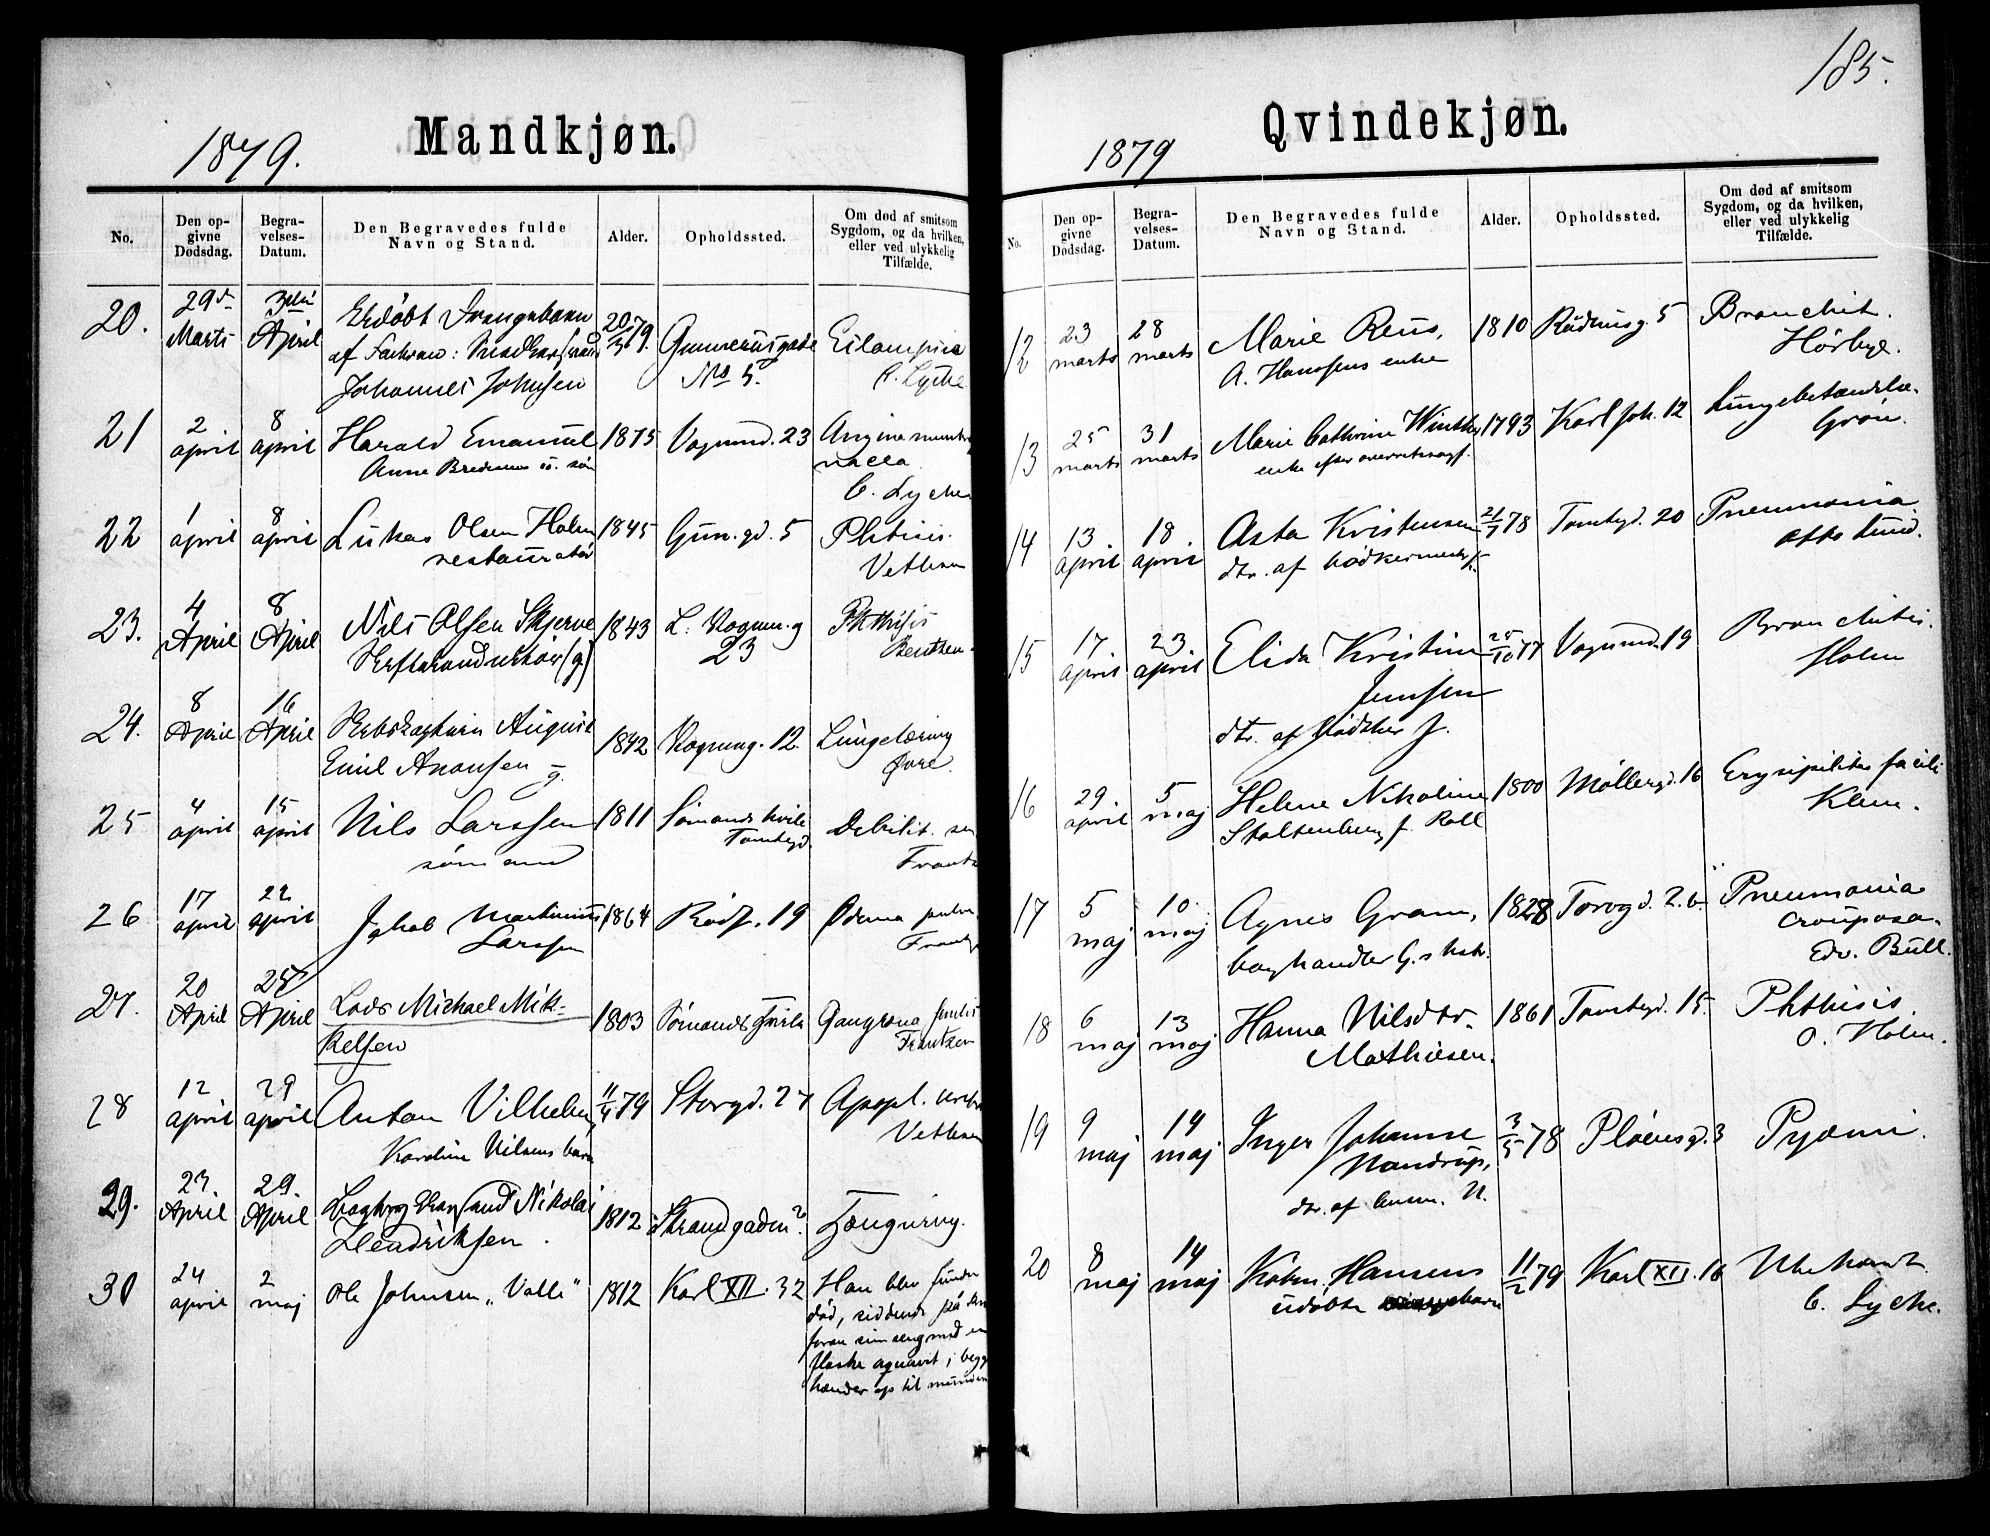 185.
Mandkjøn.
1879.
No.
Den op-
givne
Dødsdag.
Begra-
velses-
Datum.
Den Begravedes fulde
Navn og Stand.
Alder.
Opholdssted.
Om død af smitsom
Sygdom, og da hvilken,
eller ved ulykkelig
Tilfælde.
20. 29de Marts
April
af
Johannes Johnsen
20/3 79.
Gunnerusgade
No 5.
C. Lyche
21 2 april 8 april Harald Emanuel 1875 Vognmd. 23 Angina
C. Lyche
22 1 april 8 april Lukas Olsen Holm 1845 Gun. gd. 5 Phtisis.
restauratør Vetlesen
23. 4 April 8 April Nils Olsen Skjerve 1843 L. Vognm. g
23
Phthisis
Bentsen
24. 8 April 16 April Skibskaptein August
Emil Aronsen g. 1842 Vognmg. 12. Lungetæring
Øvre.
25 4 april 15 april Nils Larssen 1811 Sömands hvile
Tomtegd.
sömand
Debilit. sen
Frantz
26 17 april 22 april Jakob Martinius 1864 Rödf. 19 Ødema pulm
Larssen
27. 20 April 25 April Lods Michael Mik-
kelsen
1803 Sömands Hvile Gangræna senilis
Frantzen
28 12 april 29 april Anton Vilhelm 11/4 79 Storgd. 27 Apopl.
Karoline Nilsens barn Vetlesen
29. 23. April 29. April Nikolai
Hendriksen. 1812 Strandgaden Tæring.
30 24 april 2 maj Ole Johnsen „Valle“ 1812 Karl XII. 32 Han blev funden
død, siddende på
foran sin seng med en
flaske aquavit i begge
hænder op til munden
Qvindekjøn.
1879
No.
Den op-
givne
Dødsdag.
Begra-
velses-
Datum.
Den Begravedes fulde
Navn og Stand.
Alder.
Opholdssted.
Om død af smitsom
Sygdom, og da hvilken,
eller ved ulykkelig
Tilfælde.
12 23 marts 28 marts Marie Reus, 1810 Rådhusg. 5 Bronchit.
A. Hanssens enke Hörbye.
13 25 marts 31 marts Marie Cathrine Winther 1793 Karl Joh. 12 Lungebetændelse
enke efter overretssagf. Grön.
14 13. april 18. april Asta Kristensen 21/7 78 Tomtegd. 20 Pneumonia
dtr. af bödkermester Otto Lund.
15 17 april 23 april Elida Kristine
Jenssen
25/10 77 Vognmd. 19 Bronchitis.
Holm
dtr. af Bödker J.
16 29 april 5 maj Helene Nikoline 1800 Möllergd. 16 Erysipelitas faciei
Stoltenberg f. Roll Klem.
17 5 maj 10 maj Agnes Gram, 1828 Torvgd. 2.b. Pneumonia
crouposa.
boghandler G.s hstr. Edv. Bull.
18 6 maj 13 maj Hanna Nilsdtr. 1861 Tomtegd. 15. Phthisis
Mathiesen. O. Holm.
19 9 maj 14 maj Inger Johanne
Nandrup,
3/5 78 Plöensgd. 3 Pyæmi.
dtr. af
20 8 maj 14 maj Kåbm. Hansens 11/2 79 Karl XII. 16
udöbte
C. Lyche.